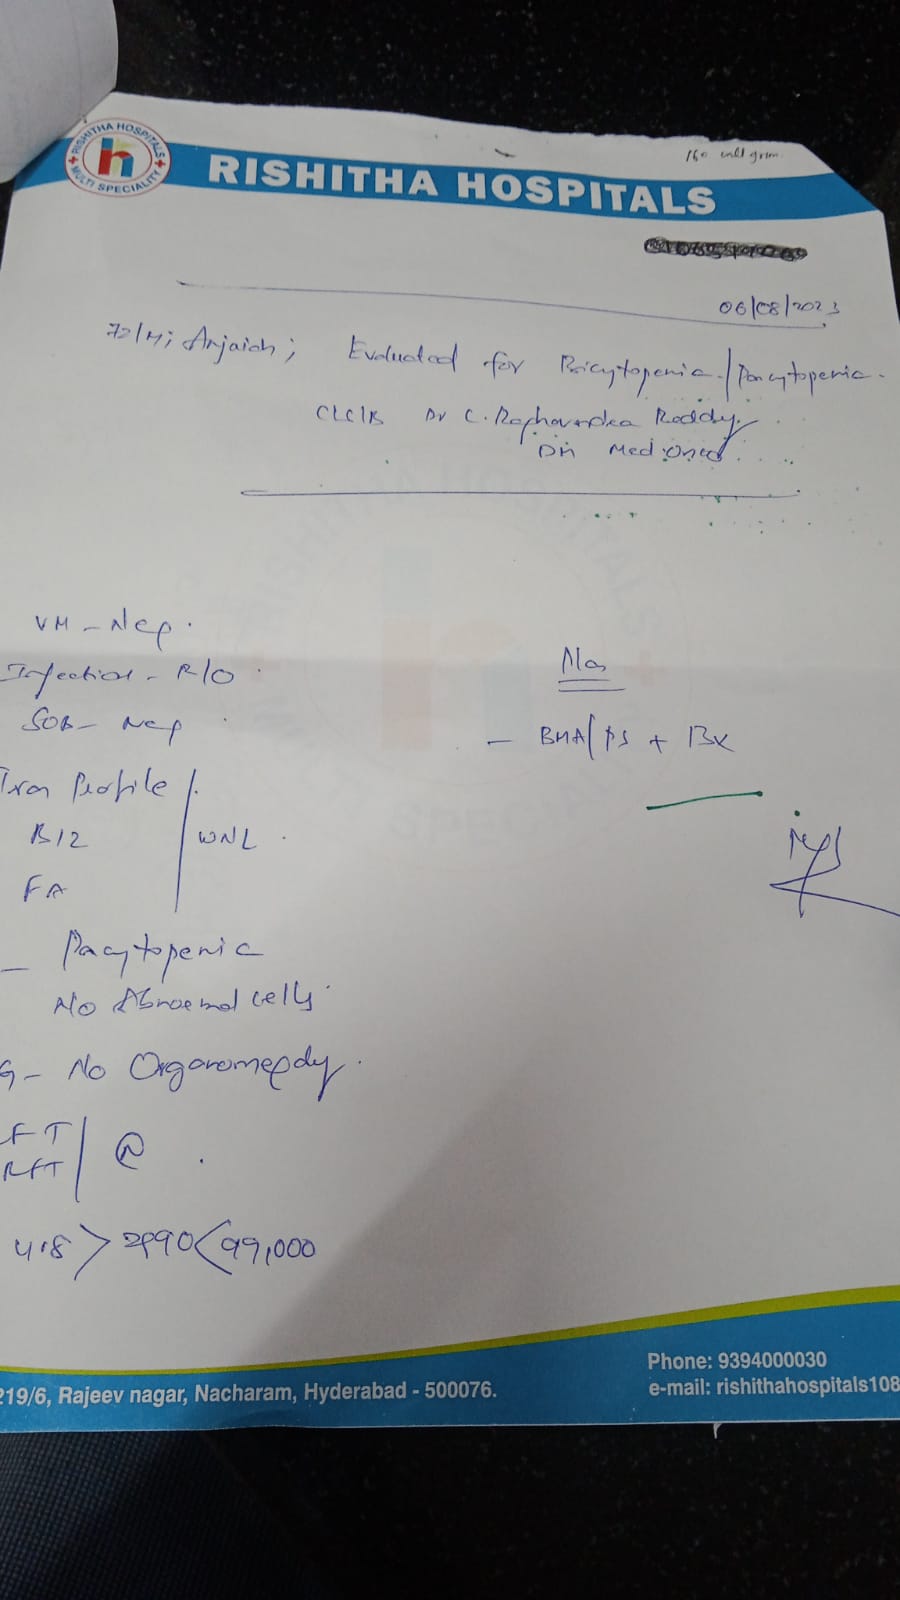 160 
RISHITHA HOSPITALS
RISHITHA HOSPITALS
MULTI SPECIALITY
06/08/2023
72/M; Anjaiah; Evaluated for Bicytopenia/Pancytopenia.
C. Raghavendra Reddy
DM Med. Onco
VM - Neg.
Infection - R/O
SOB - Neg
Iron Profile
B12
WNL
FA
- Pacytopenic
No Abnormal cells
G - No Organomegaly.
FT
RFT
N
4.8 > 2990 < 99,000
- BMA/PS + Bx
219/6, Rajeev nagar, Nacharam, Hyderabad - 500076.
Phone: 9394000030
e-mail: rishithahospitals108